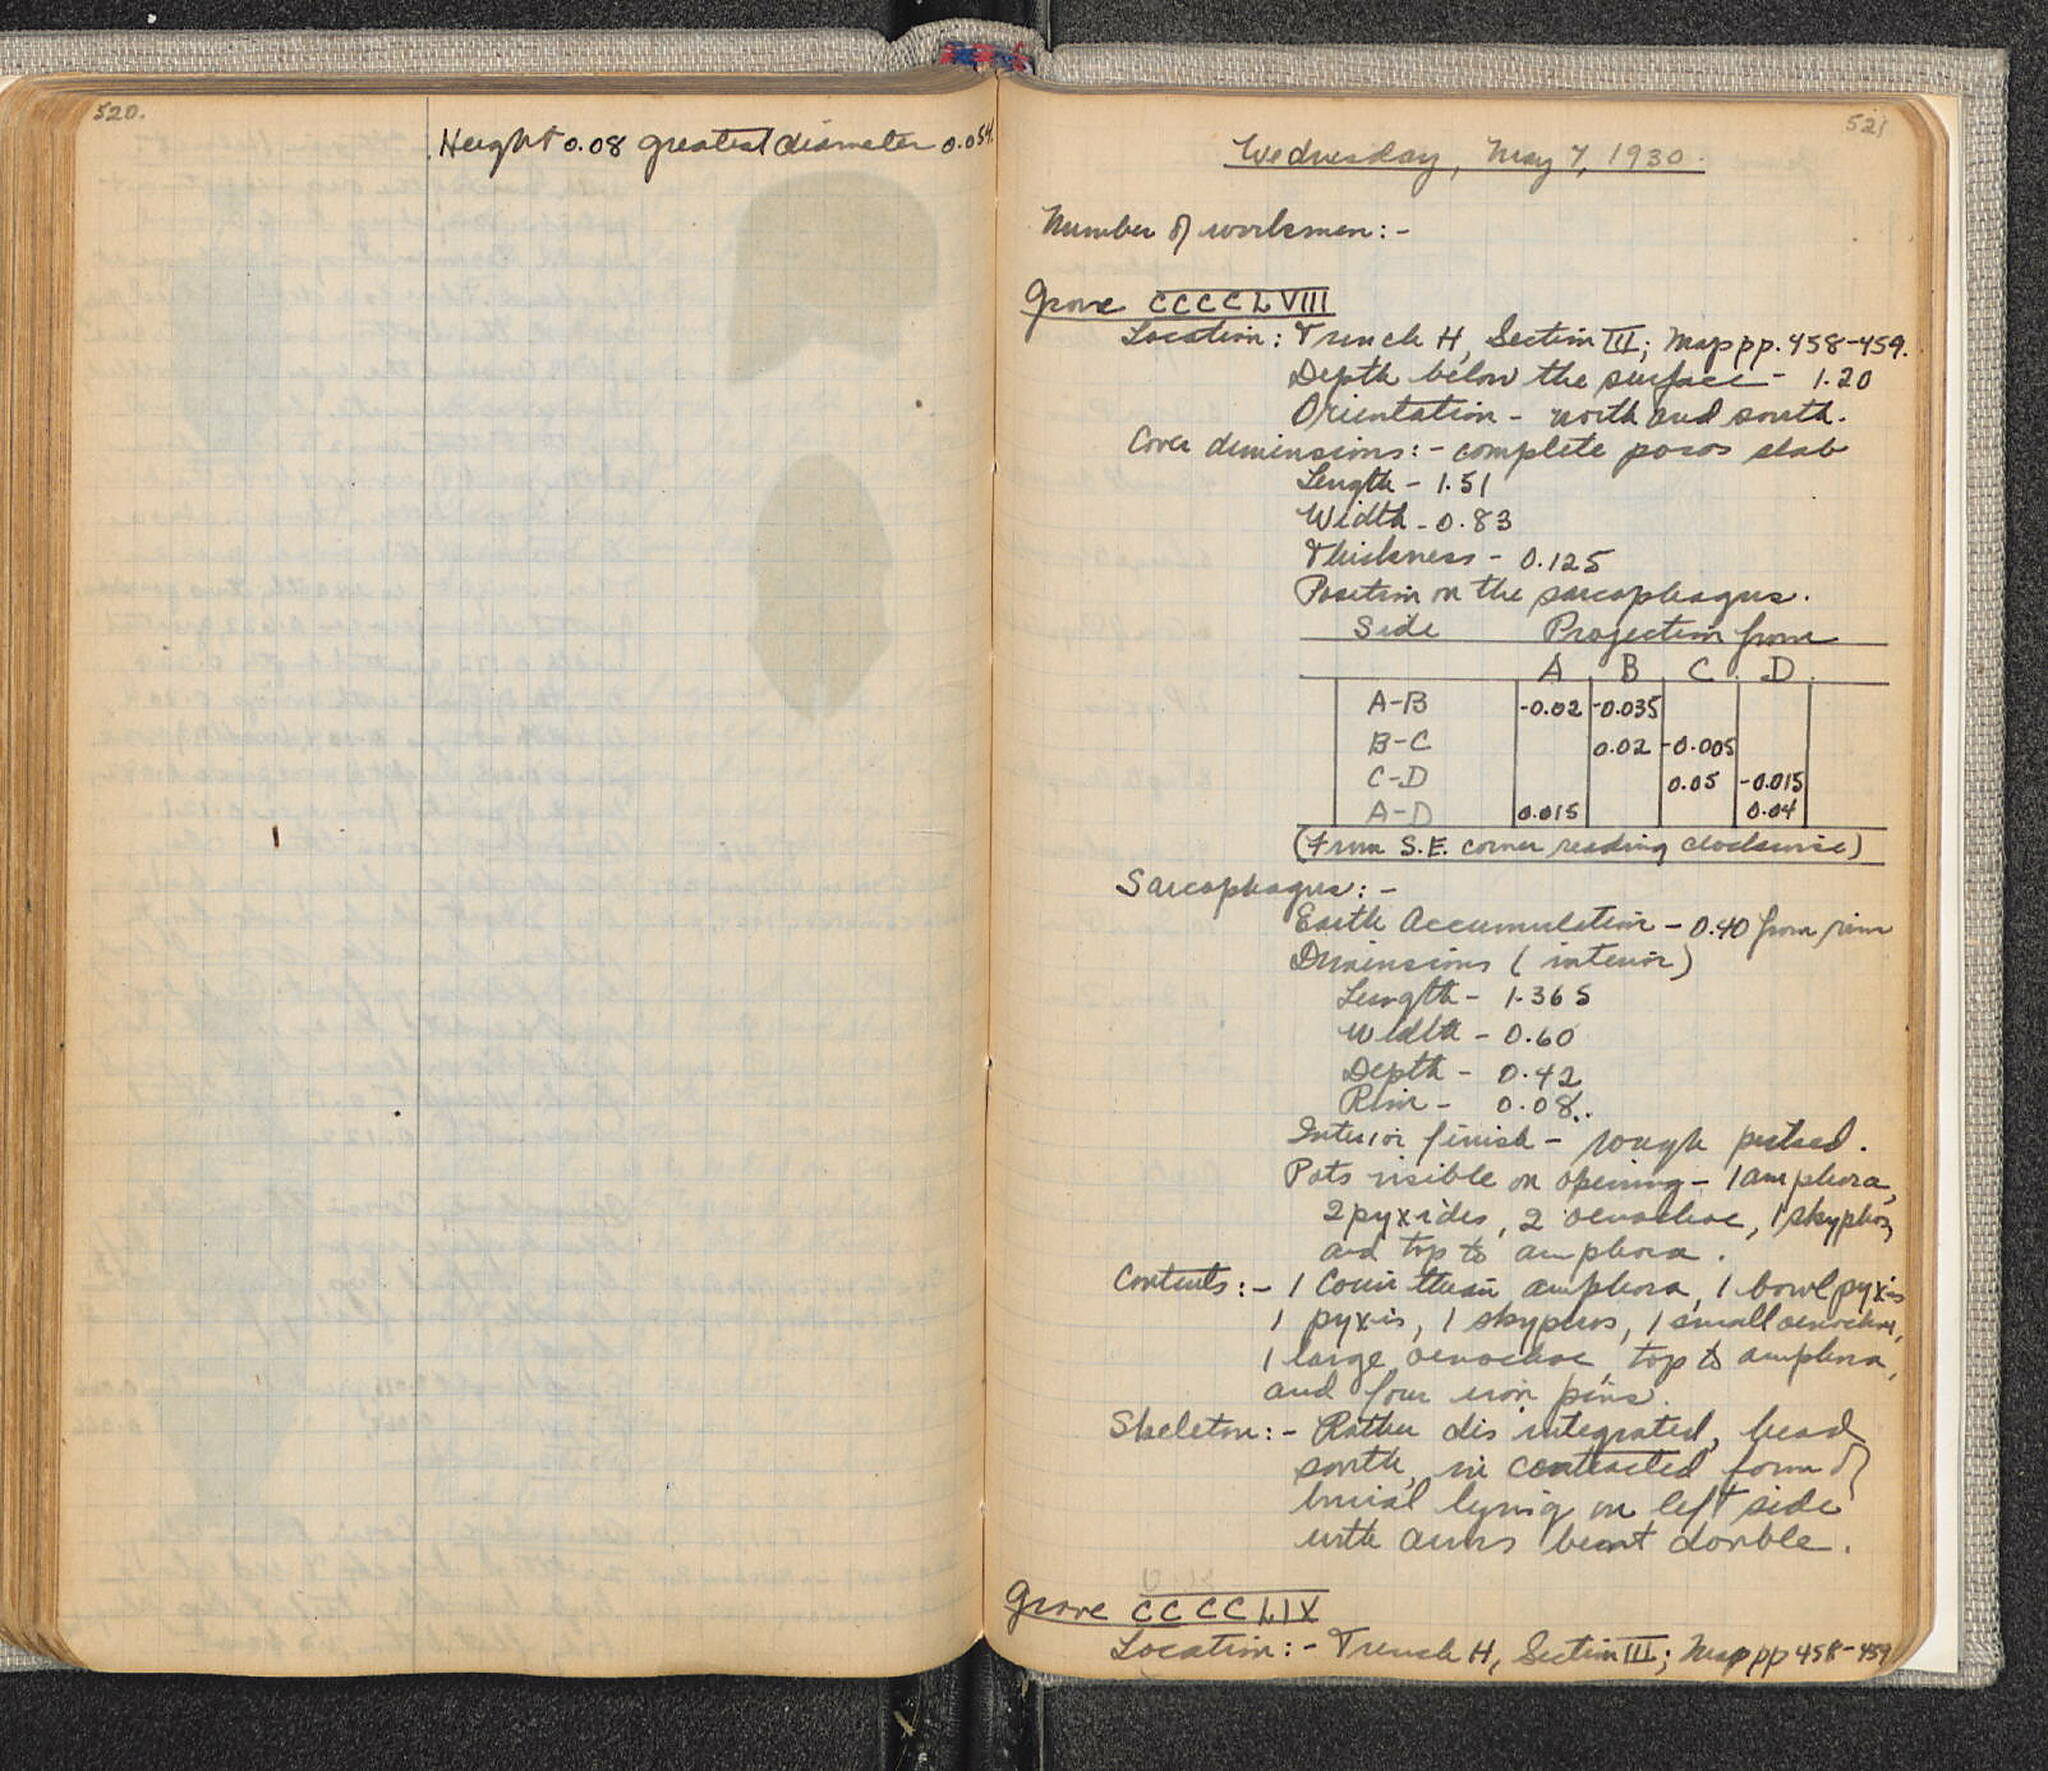 520.
Height 0.08 greatest diameter 0.054.
521
Wednesday, May 7, 1930.
Number of workmen:-
Grave CCCCLVIII
Location: Trench H, Section III; Map pp. 458-459.
Depth below the surface - 1.20
Orientation - north and south.
Cover dimensions:- complete poros slab
Length - 1.51
Width - 0.83
Thickness - 0.125
Position on the sarcophagus.
Side Projection from
A B C D
A-B -0.02 -0.035
B-C 0.02 -0.005
C-D 0.05 -0.015
A-D 0.015 0.04
(From S.E. corner reading clockwise)
Sarcophagus:-
Earth Accumulation - 0.40 from rim
Dimensions (interior)
Length - 1.365
Width - 0.60
Depth - 0.42
Rim - 0.08..
Interior finish - rough picked.
Pots visible on opening - 1 amphora,
2 pyxides, 2 oenochoe, 1 skyphos,
and top to amphora.
Contents:- 1 Corinthian amphora, 1 bowl pyxis
1 pyxis, 1 skyphos, 1 small oenochoe,
1 large oenochoe, top to amphora,
and four iron pins.
Skeleton:- Rather disintegrated, head
south, in contracted form of
burial lying on left side
with arms bent double.
Grave CCCCLIX
Location:- Trench H, Section III; Map pp 458-459